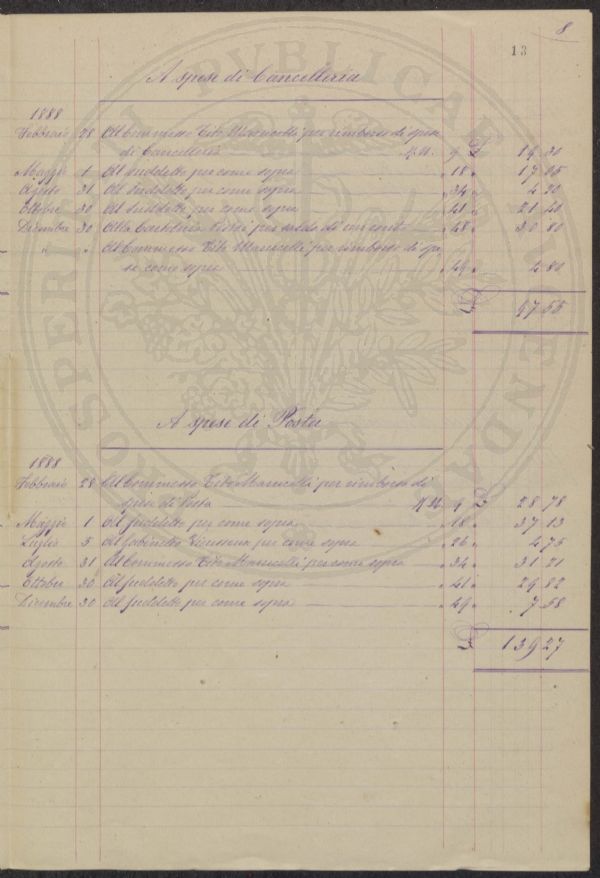 8
13
A spese di Cancelleria
1888
Febbraio 28 Al Commesso Tito Marucelli per rimborso di spese
di Cancelleria M.N. 9 £ 19 30
Maggio 1 Al suddetto per come sopra " 18 " 17 05
Agosto 31 Al suddetto per come sopra " 34 " 4 20
Ottobre 30 Al suddetto per come sopra " 41 " 21 40
Dicembre 30 Alla Cartoleria per saldo di un conto " 48 " 30 80
" " Al Commesso Tito Marucelli per rimborso di spe
se come sopra " 49 " 4 80
£ 97 55
A spese di Posta
1888
Febbraio 28 Al Commesso Tito Marucelli per rimborso di
spese di Posta M.N. 9 £ 28 78
Maggio 1 Al suddetto per come sopra " 18 " 37 13
Luglio 5 Al Gabinetto Vieusseux per come sopra " 26 " 4 75
Agosto 31 Al Commesso Tito Marucelli per come sopra " 34 " 31 21
Ottobre 30 Al suddetto per come sopra " 41 " 29 82
Dicembre 30 Al suddetto per come sopra " 49 " 7 58
£ 139 27
PROSPERITATI PUBLICAE AUGENDAE